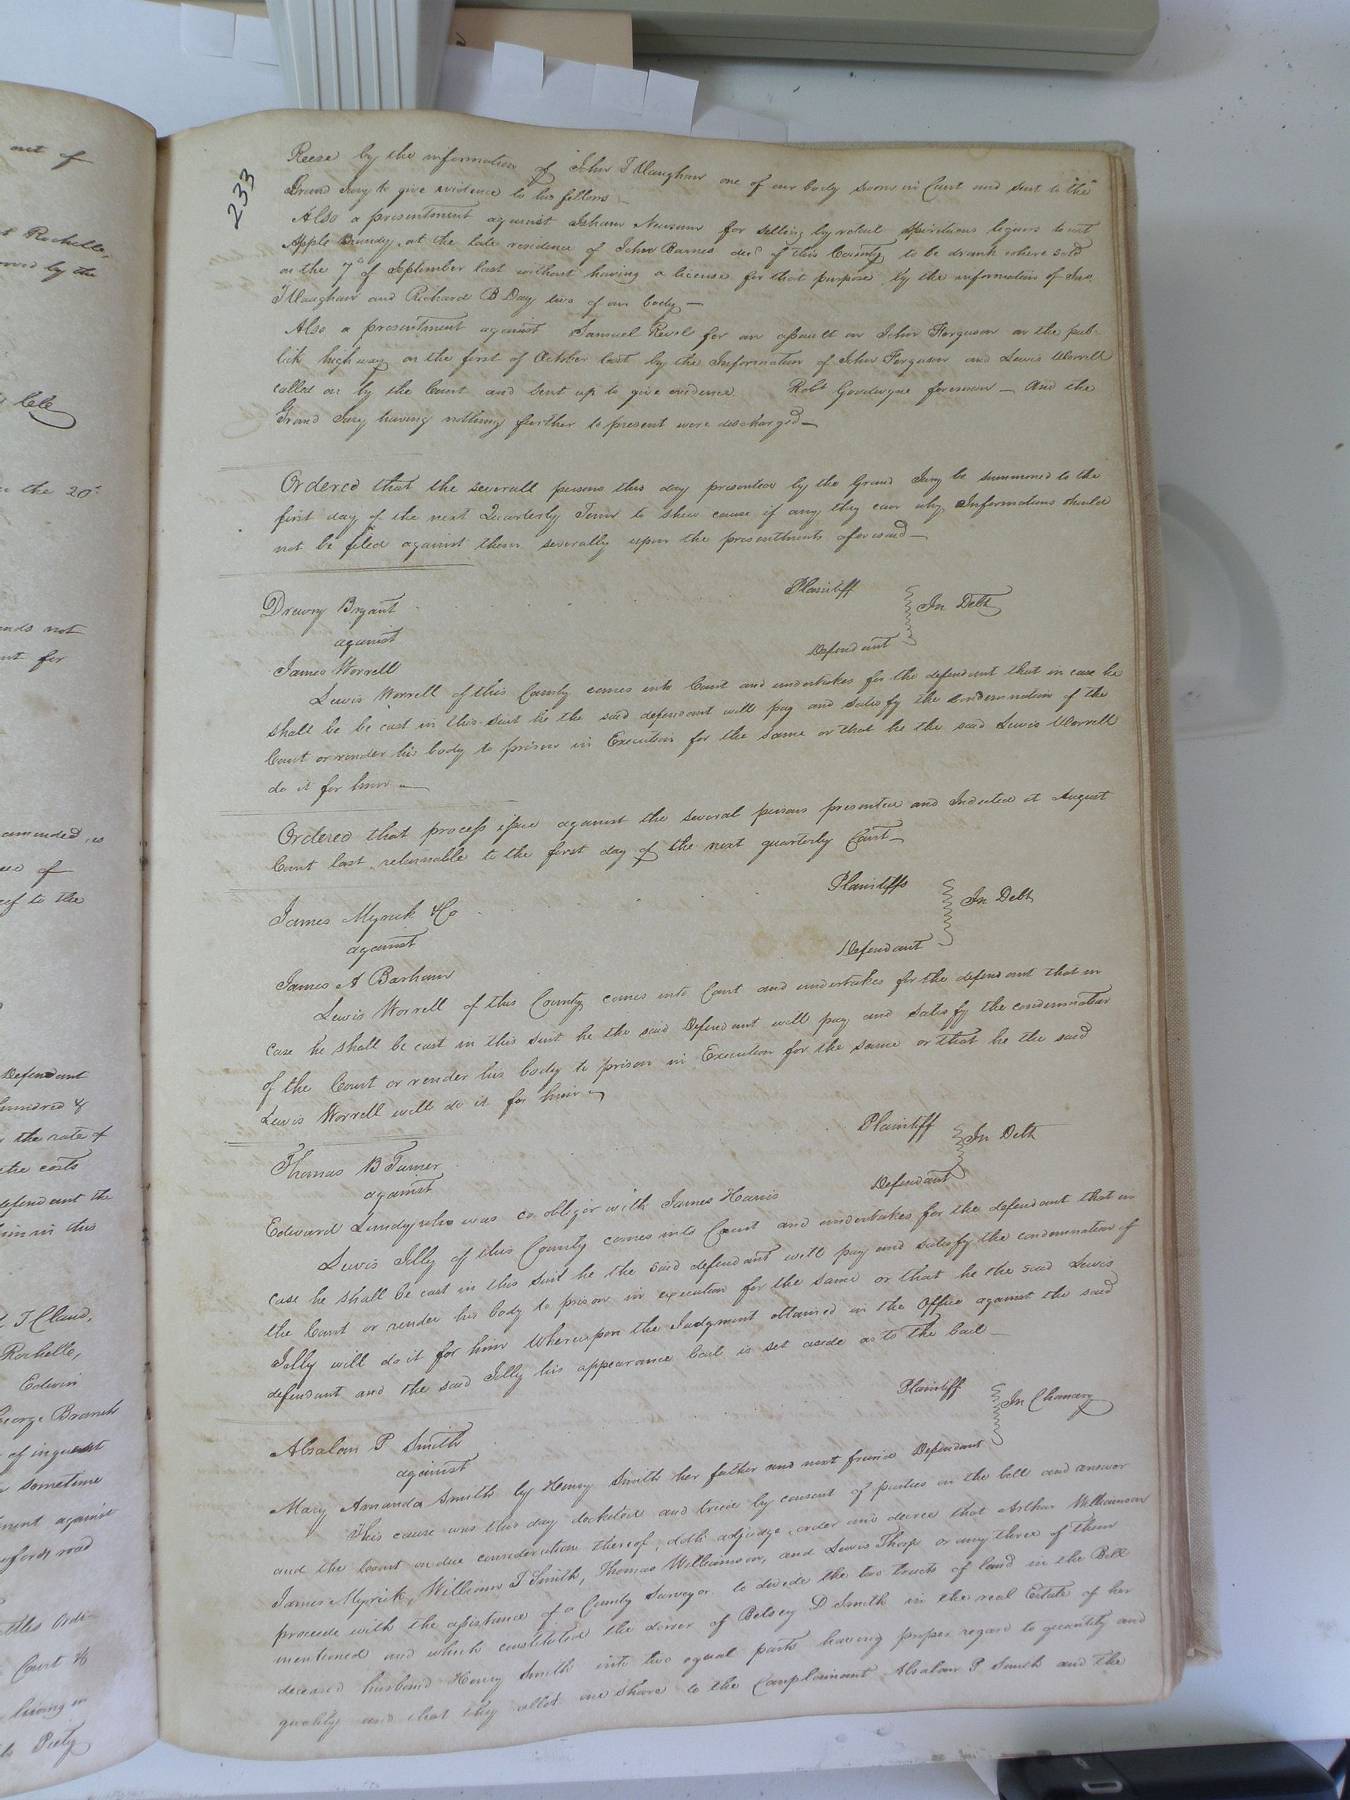 out of
Rochelle,
by the
the 20th
not
for
amended, as
of
to the
Defendant
hundred &
the rate of
costs
defendant the
in this
J Claud,
Rochelle,
Edwin
George Branch
of inquest
sometime
against
road
Court
living in
233
Reese by the information of John T Maughan one of our body sworn in Court and sent to the
Grand Jury to give evidence to his fellows
Also a presentment against Isham Newsum for selling by retail spiritous liquors to wit
Apple Brandy at the late residence of John Barnes decd of this County to be drank where sold
on the 7th of September last without having a license for that purpose by the information of Jno
T Maughan and Richard B Day two of our body —
Also a presentment against Samuel Revel for an assault on John Ferguson on the pub-
lick highway on the first of October last by the Information of John Ferguson and Lewis Worrell
called on by the Court and sent up to give evidence Robt Goodwyne foreman — And the
Grand Jury having nothing further to present were discharged —
Ordered that the severall persons this day presented by the Grand Jury be summoned to the
first day of the next Quarterly Term to shew cause if any they can why Informations should
not be filed against them severally upon the presentments aforesaid —
Drewry Bryant Plaintiff
against In Debt
James Worrell Defendant
Lewis Worrell of this County comes into Court and undertakes for the defendant that in case he
shall be be cast in this suit he the said defendant will pay and satisfy the condemnation of the
Court or render his body to prison in Execution for the same or that he the said Lewis Worrell
do it for him —
Ordered that process issue against the several persons presented and Indicted at August
Court last returnable to the first day of the next quarterly Court —
James Myrick & Co Plaintiffs
against In Debt
James A Barham Defendant
Lewis Worrell of this County comes into Court and undertakes for the defendant that in
case he shall be cast in this suit he the said Defendant will pay and satisfy the condemnation
of the Court or render his body to prison in Execution for the same or that he the said
Lewis Worrell will do it for him —
Thomas B Turner Plaintiff
against In Debt
Edward Lundy who was co obligor with James Harris Defendant
Lewis Jelly of this County comes into Court and undertakes for the defendant that in
case he shall be cast in this suit he the said defendant will pay and satisfy the condemnation of
the Court or render his body to prison in execution for the same or that he the said Lewis
Jelly will do it for him Whereupon the Judgment obtained in the Office against the said
defendant and the said Jelly his appearance bail is set aside as to the bail —
Absalom P Smith Plaintiff
against In Chancery
Mary Amanda Smith by Henry Smith her father and next friend Defendant
This cause was this day docketed and tried by consent of parties on the bill and answer
and the Court on due consideration thereof, doth adjudge, order and decree that Arthur Williamson
James Myrick, William J Smith, Thomas Williamson, and Lewis Thorp or any three of them
proceed with the assistance of a County Surveyor to divide the two tracts of land in the Bill
mentioned and which constituted the dower of Betsey D Smith in the real Estate of her
deceased husband Henry Smith into two equal parts having proper regard to quantity and
quality and that they allot one share to the Complainant Absalom P. Smith and the